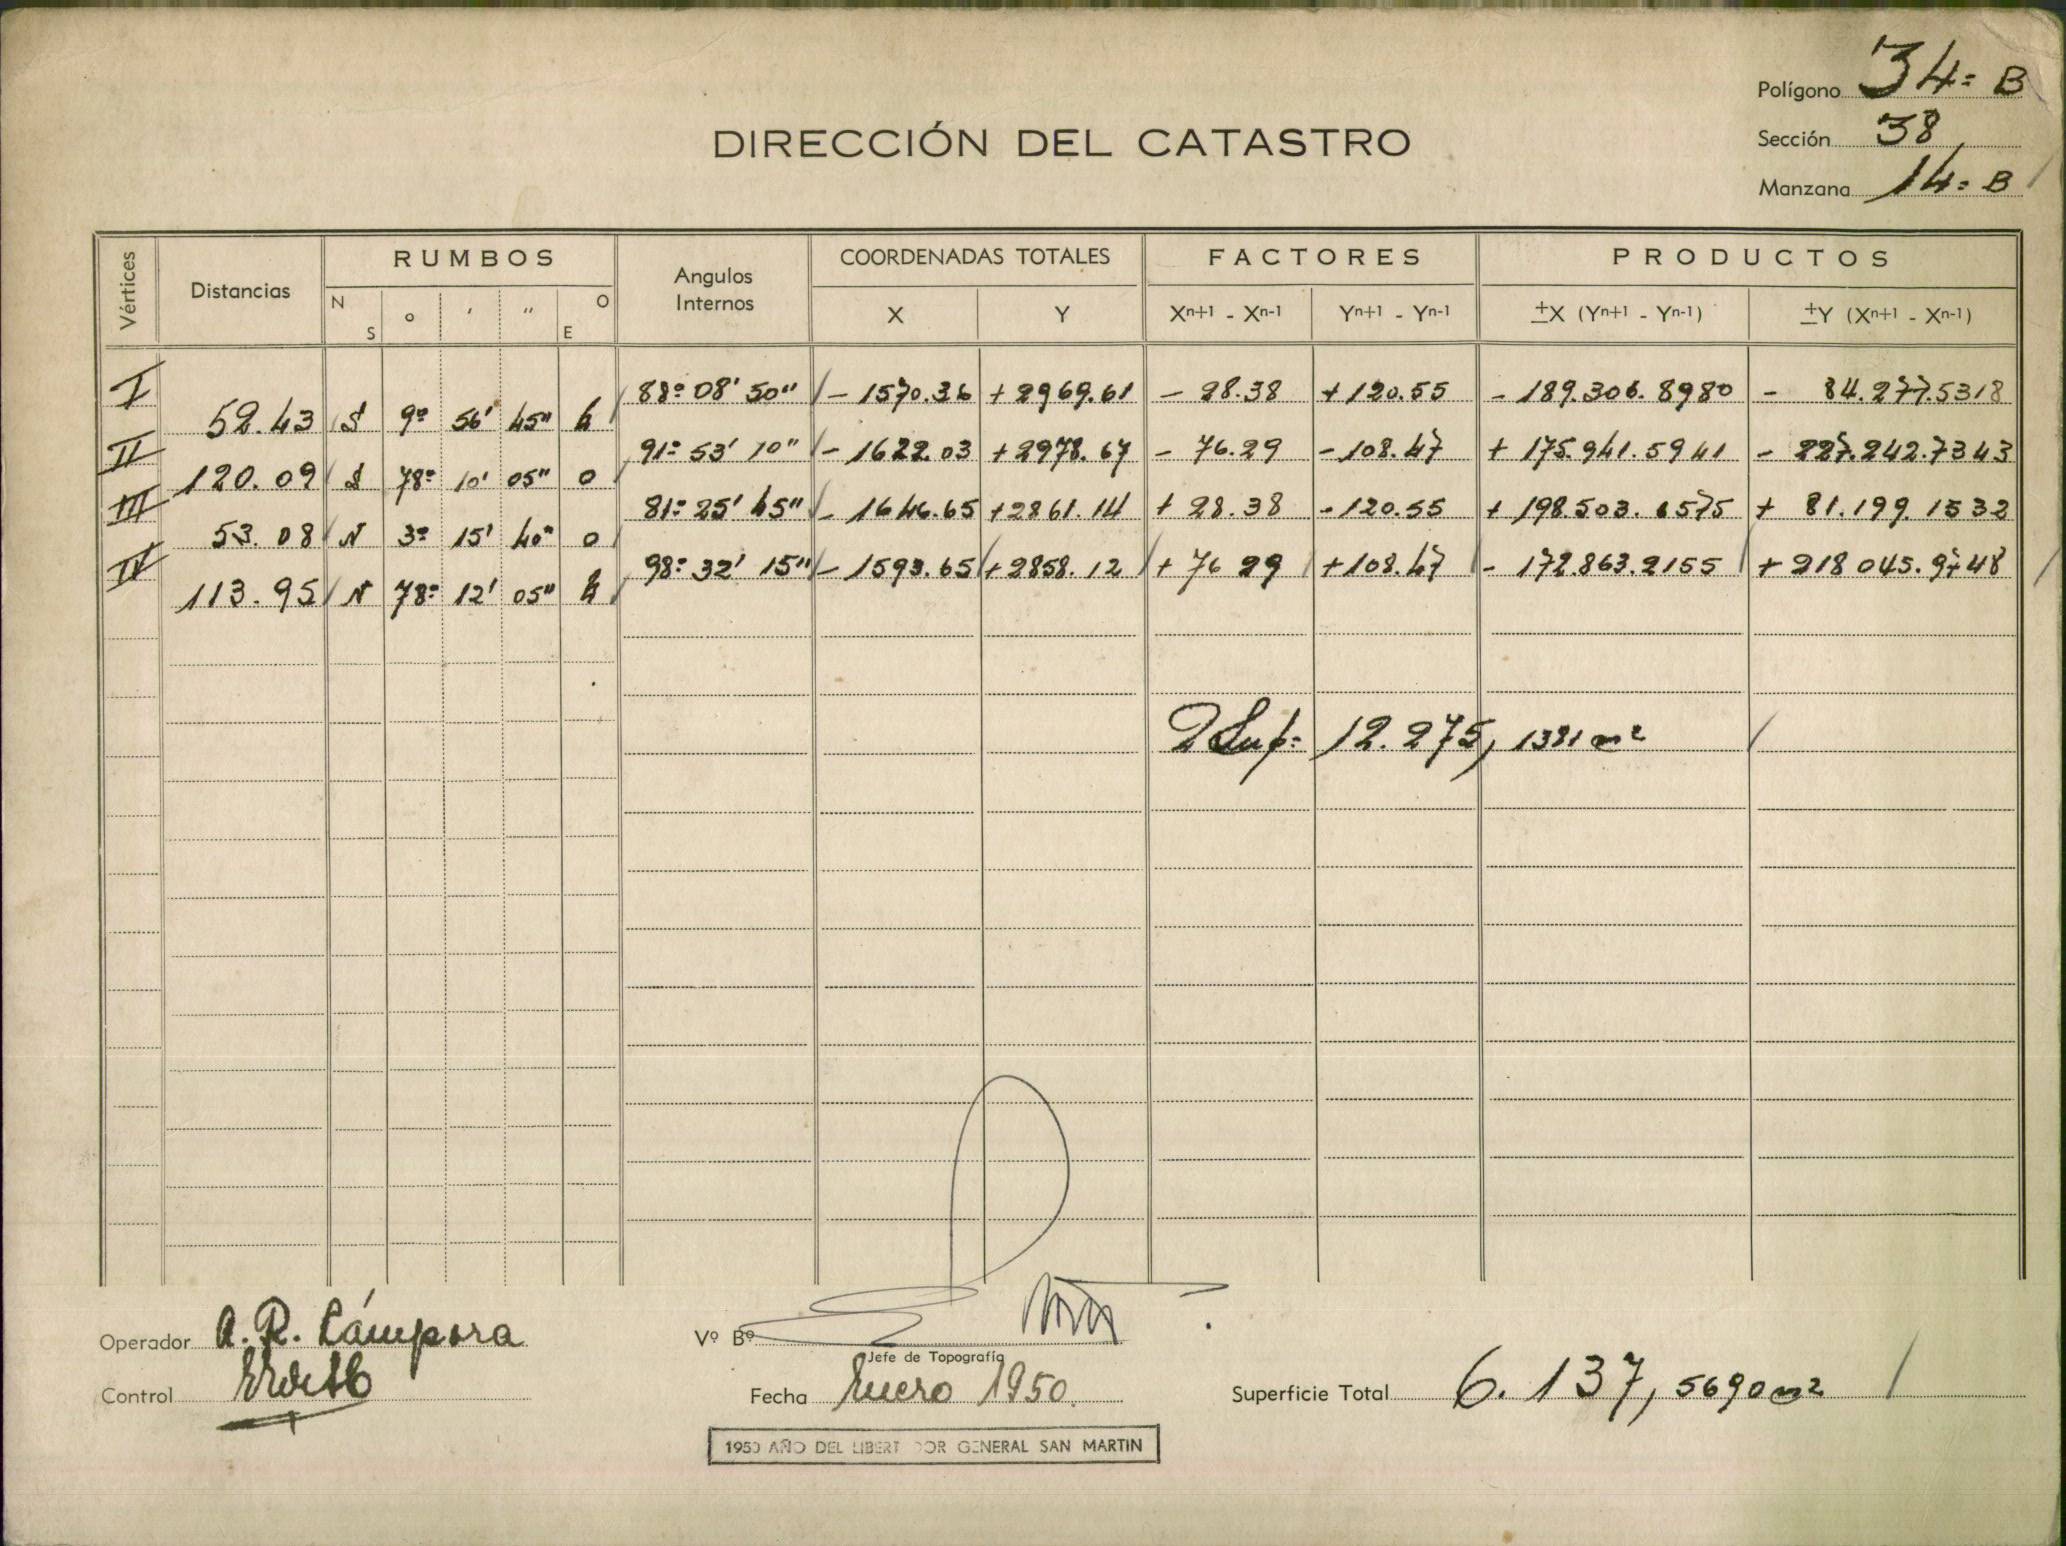 Polígono 34= B
Sección 38
Manzana 14= B
DIRECCIÓN DEL CATASTRO
Vértices Distancias RUMBOS Angulos Internos COORDENADAS TOTALES FACTORES PRODUCTOS
N S o ' " O E X Y Xn+1 - Xn-1 Yn+1 - Yn-1 ±X (Yn+1 - Yn-1) ±Y (Xn+1 - Xn-1)
I 88º 08' 50" - 1570.36 + 2969.61 - 28.38 + 120.55 - 189.306.8980 - 84.277.5318
52.43 S 9º 56' 45" E
II 91º 53' 10" - 1622.03 + 2978.67 - 76.29 - 108.47 + 175.941.5941 - 227.242.7343
120.09 S 78º 10' 05" O
III 81º 25' 45" - 1646.65 + 2861.14 + 28.38 - 120.55 + 198.503.6575 + 81.199.1532
53.08 N 3º 15' 40" O
IV 98º 32' 15" - 1593.65 + 2858.12 + 76 29 + 108.47 - 172.863.2155 + 218 045.9748
113.95 N 78º 12' 05" E
2 Sup= 12.275, 1381 m²
Operador A. R. Cámpora
Vº Bº
Jefe de Topografía
Control
Fecha Enero 1950.
Superficie Total 6.137, 5690 m²
1950 AÑO DEL LIBERT DOR GENERAL SAN MARTIN